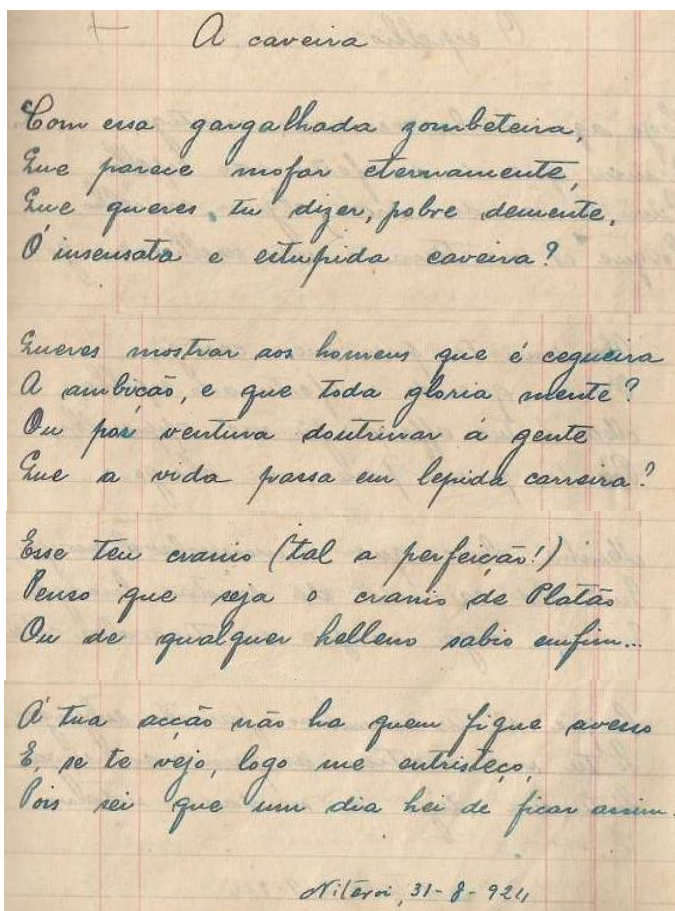 A caveira
Com essa gargalhada zombeteira,
Que parece mofar eternamente,
Que queres, tu dizer, pobre demente,
Ó insensata e estupida caveira?
Queres mostrar aos homens que é cegueira
A ambição, e que toda gloria mente?
Ou por ventura doutrinar á gente
Que a vida passa em lepida carreira?
Esse teu cranio (tal a perfeição!)
Penso que seja o cranio de Platão
Ou de qualquer helleno sabio emfim...
Á tua acção não ha quem fique avesso
E, se te vejo, logo me entristeço,
Pois sei que um dia hei de ficar assim.
Niteroi, 31-8-924